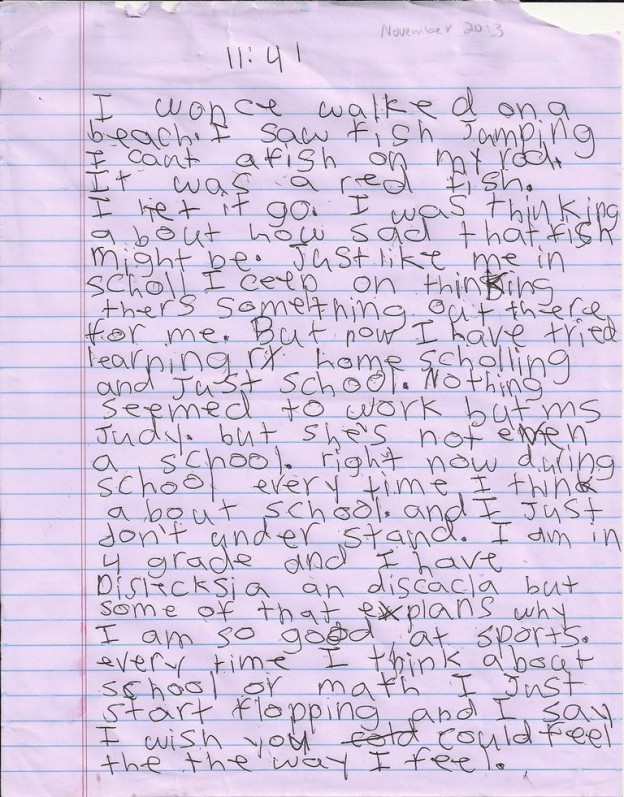 November 2013
11:41
I wonce walked on a
beach. I saw fish Jumping
I cant a fish on my rod.
It was a red fish.
I let it go. I was thinking
a bout how sad that fish
might be. Just like me in
scholl I ceep on thinking
thers something out there
for me. But now I have tried
learning rx home scholling
and Just school. Nothing
seemed to work but ms
Judy. but she's not even
a school. right now during
school every time I think
a bout school. and I Just
don't under stand. I am in
4 grade and I have
Dislecksia an discacla but
some of that explans why
I am so good at sports.
every time I think about
school or math I Just
start flopping and I say
I wish you cold could feel
the the way I feel.